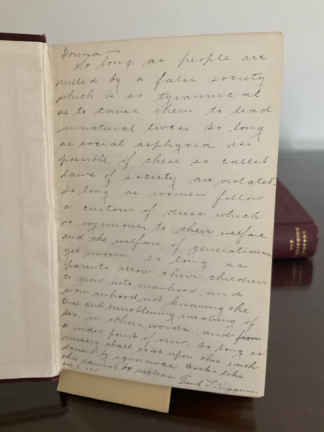 Donna
So long as people are
ruled by a false society
which is so tyrannical
as to cause them to lead
unnatural lives so long
as social asphyxia is
possible if these so called
laws of society are violated,
so long as women follow
a custom of dress which
is injurious to their welfare
and the welfare of generations
yet unborn, so long as
parents allow their children
to grow into manhood and
womanhood not knowing the
true and ennobling meaning of
sex, in other words, and from
a wider point of view. So long as
misery shall exist upon this earth
by ignorance books like
this cannot be useless